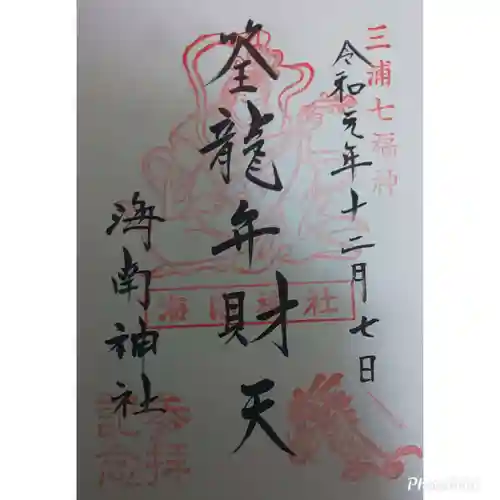 三浦七福神
令和元年十二月七日
筌龍弁財天
海南神社
海南神社
参拝
記念